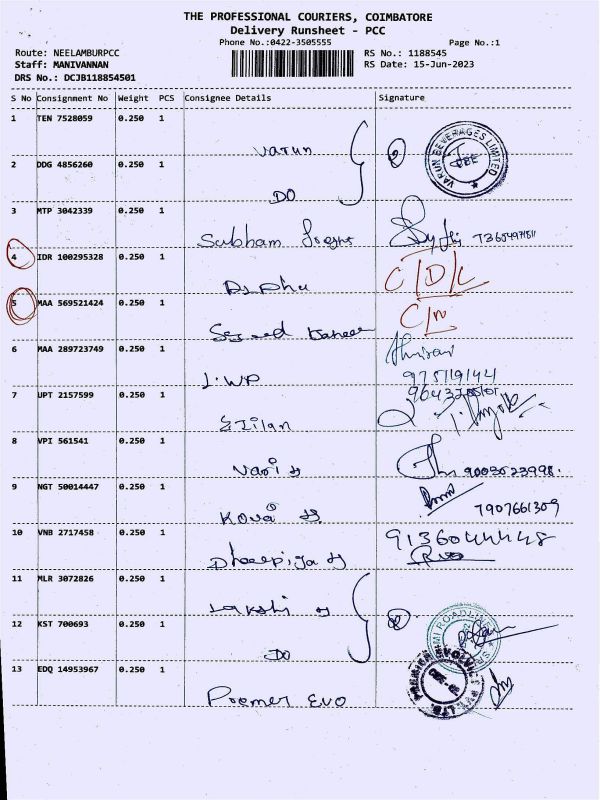 THE PROFESSIONAL COURIERS, COIMBATORE
Delivery Runsheet - PCC
Phone No.:0422-3505555 Page No.:1
Route: NEELAMBURPCC RS No.: 1188545
Staff: MANIVANNAN RS Date: 15-Jun-2023
DRS No.: DCJB118854501
S No Consignment No Weight PCS Consignee Details Signature
1 TEN 7528059 0.250 1 Varun VARUN BEVERAGES LIMITED
2 DDG 4856260 0.250 1 DO 2
3 MTP 3042339 0.250 1 Subham
4 IDR 100295328 0.250 1 C/D/L
5 MAA 569521424 0.250 1 C/N
6 MAA 289723749 0.250 1 I.WP
7 UPT 2157599 0.250 1 Ezilan
8 VPI 561541 0.250 1 9003523998.
9 NGT 50014447 0.250 1 7907661309
10 VNB 2717458 0.250 1 9136044448
11 MLR 3072826 0.250 1
12 KST 700693 0.250 1 DO 2
13 EDQ 14953967 0.250 1 Premer Evo